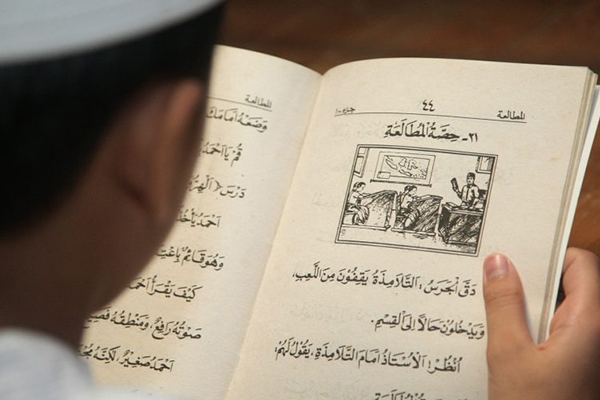 المطالعة ٤٤ جزء-١
٢١- حِصَّةُ الْمُطَالَعَةِ
دَقَّ الْجَرَسُ، التَّلَامِذَةُ يَقِفُونَ مِنَ اللَّعِبِ،
وَيَدْخُلُونَ حَالًا إِلَى الْقِسْمِ.
اُنْظُرْ! اَلْأُسْتَاذُ أَمَامَ التَّلَامِذَةِ، يَقُولُ لَهُمْ:
المطالعة
وَضَعَهُ أَمَامَكَ
قُمْ يَا أَحْمَدُ
دَرْسَ
أَحْمَدُ
وَهُوَ قَائِمٌ
كَيْفَ يَقْرَأُ
صَوْتُهُ رَافِعٌ، وَمَنْطِقُهُ
أَحْمَدُ صَغِيرٌ، لَكِنَّهُ